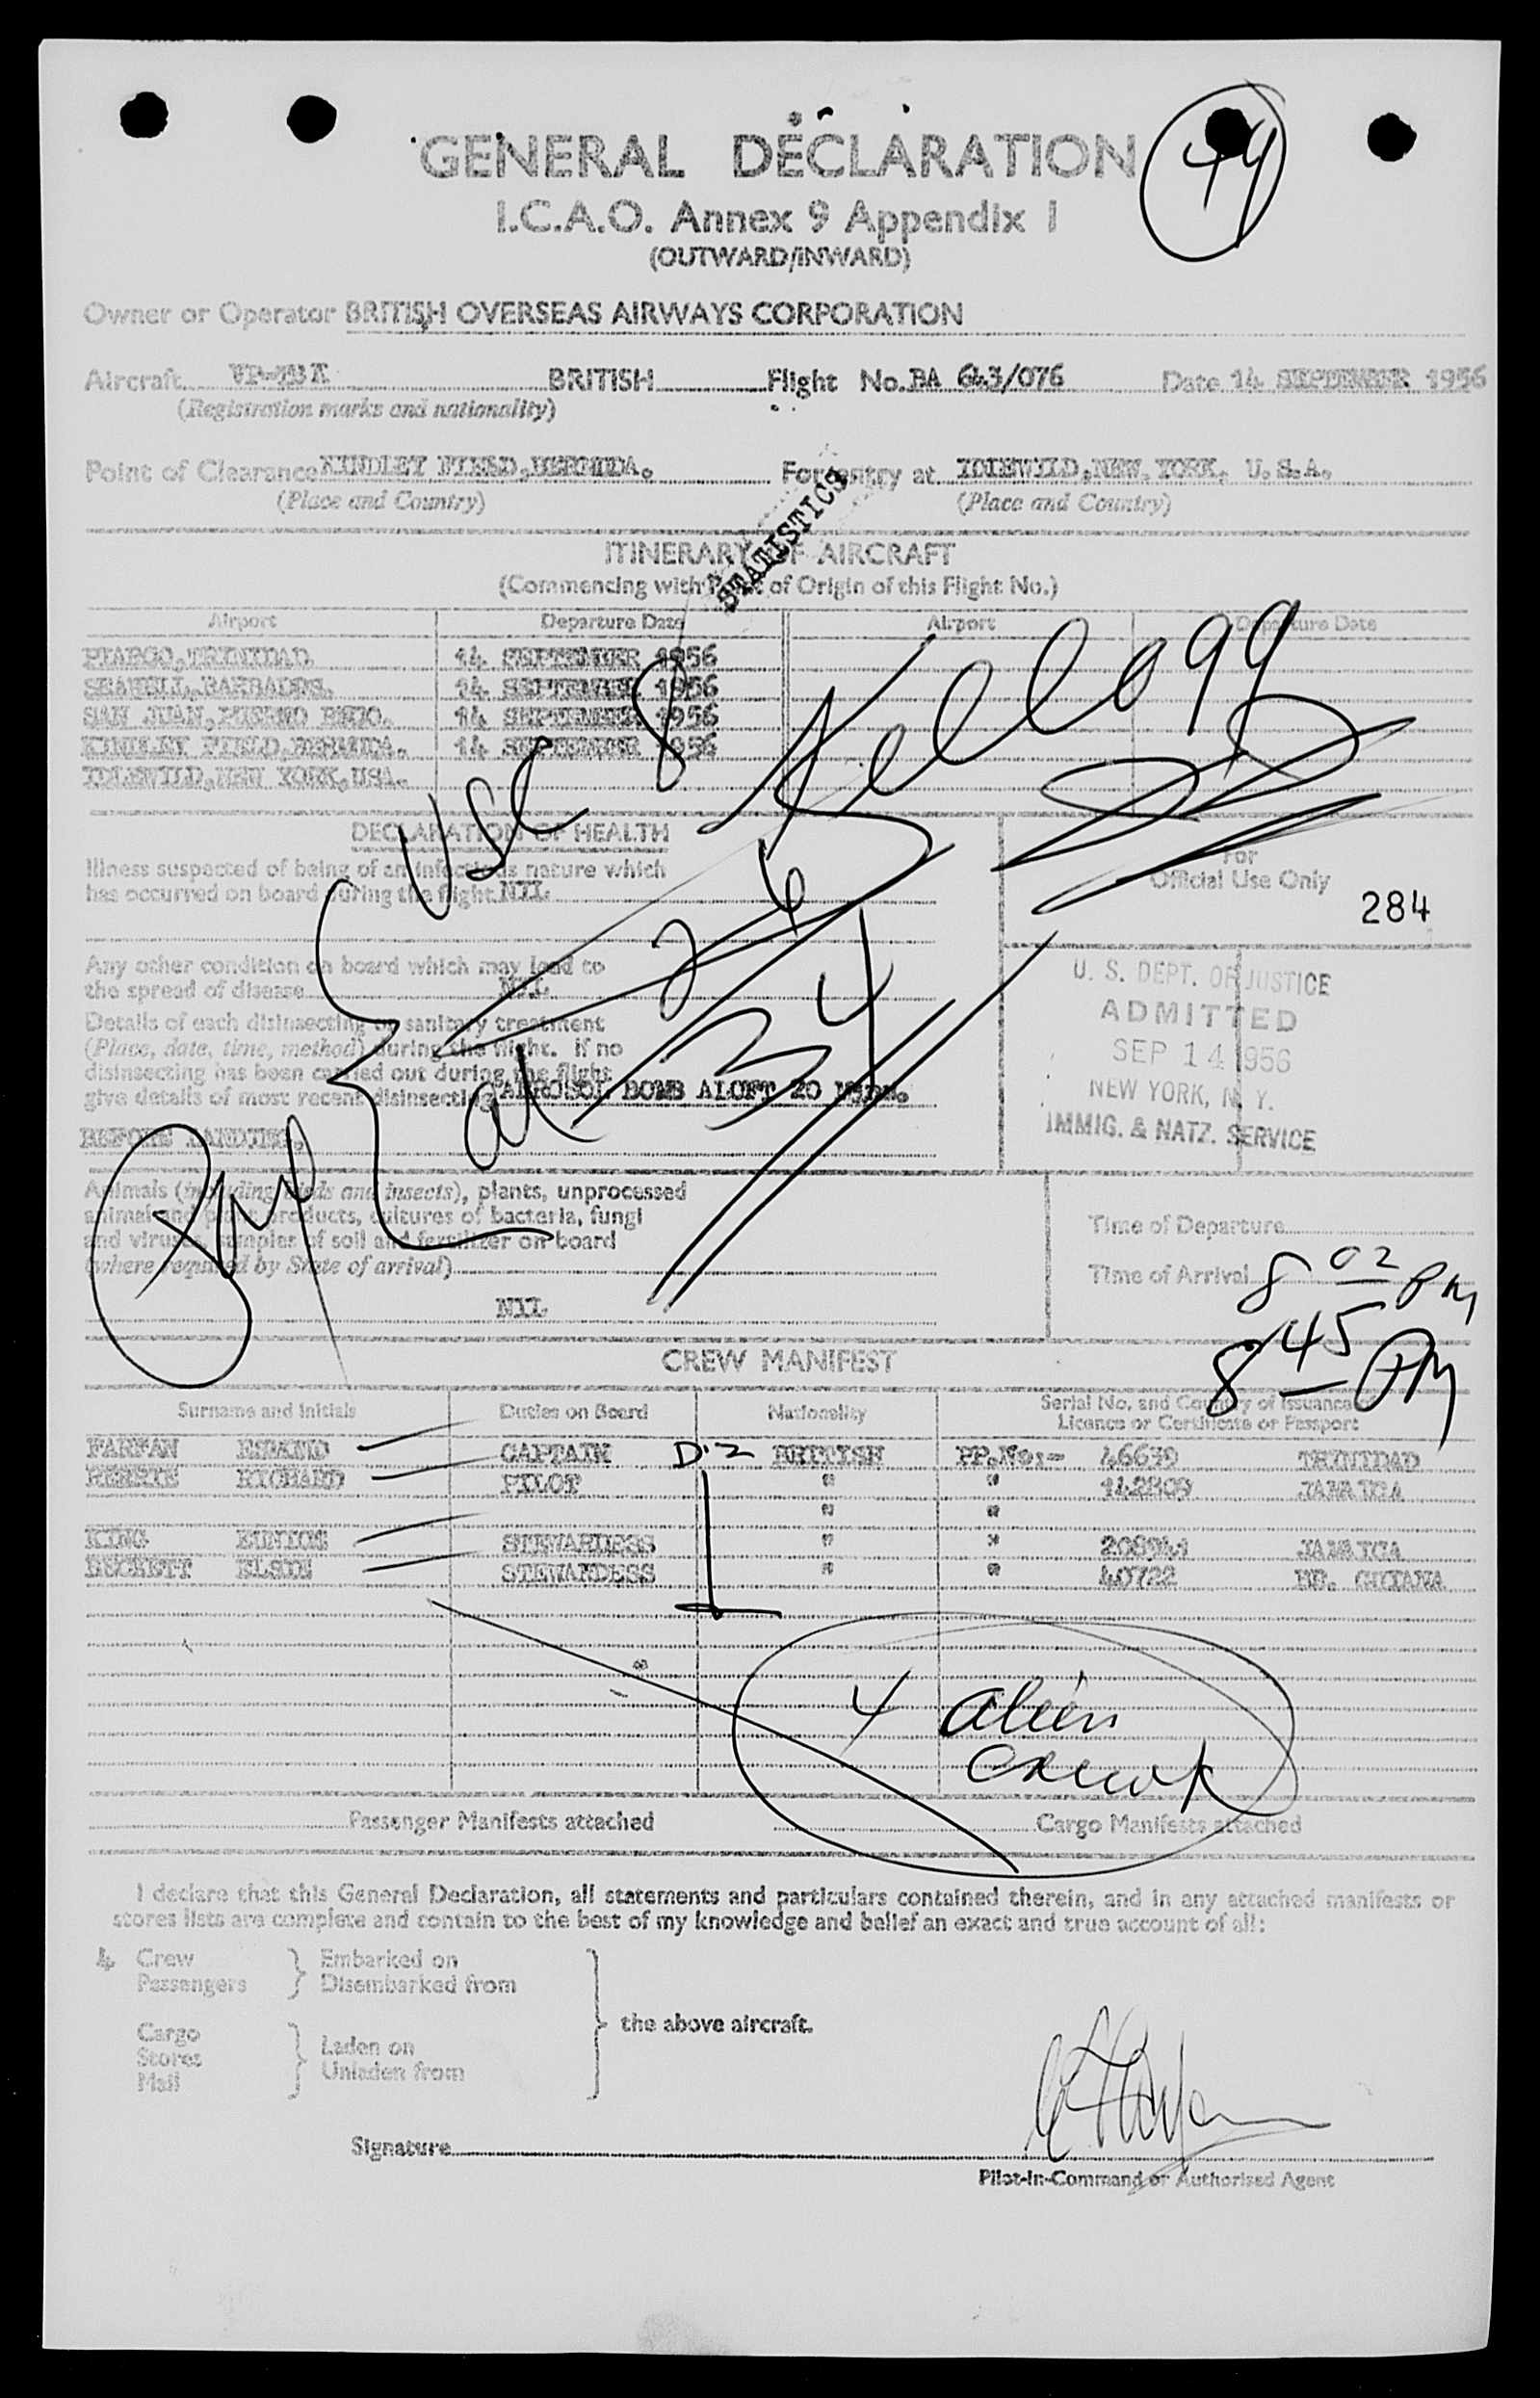 GENERAL DECLARATION
44
I.C.A.O. Annex 9 Appendix 1
(OUTWARD/INWARD)
Owner or Operator BRITISH OVERSEAS AIRWAYS CORPORATION
Aircraft BRITISH Flight No. BA 643/076 Date 14 SEPTEMBER 1956
(Registration marks and nationality)
Point of Clearance KINDLEY FIELD, BERMUDA. For entry at IDLEWILD, NEW YORK, U.S.A.
(Place and Country) (Place and Country)
STATISTICS
ITINERARY OF AIRCRAFT
(Commencing with Point of Origin of this Flight No.)
Airport Departure Date Airport Departure Date
PIARCO, TRINIDAD. 14 SEPTEMBER 1956
SEAWELL, BARBADOS. 14 SEPTEMBER 1956
SAN JUAN, PUERTO RICO. 14 SEPTEMBER 1956
KINDLEY FIELD, BERMUDA. 14 SEPTEMBER 1956
IDLEWILD, NEW YORK, USA.
use 8 Kellogg
26
at 34
DECLARATION OF HEALTH
Illness suspected of being of an infectious nature which
has occurred on board during the flight NIL
For
Official Use Only
284
Any other condition on board which may lead to
the spread of disease NIL
Details of each disinsecting or sanitary treatment
(Place, date, time, method) during the flight. If no
disinsecting has been carried out during the flight
give details of most recent disinsecting AEROSOL BOMB ALOFT 20 MINS.
BEFORE LANDING.
U. S. DEPT. OF JUSTICE
ADMITTED
SEP 14 1956
NEW YORK, N. Y.
IMMIG. & NATZ. SERVICE
Animals (including birds and insects), plants, unprocessed
animal and plant products, cultures of bacteria, fungi
and viruses, samples of soil and fertilizer on board
(where required by State of arrival)
NIL
Time of Departure
Time of Arrival 8 02 PM
8 45 PM
CREW MANIFEST
Surname and Initials Duties on Board Nationality Serial No. and Country of Issuance of
Licence or Certificate or Passport
FARFAN CAPTAIN D-2 BRITISH PP.No:- 46639 TRINIDAD
RICHARD PILOT " " 142809 JAMAICA
" "
KING EUNICE STEWARDESS " " JAMAICA
BECKETT ELSIE STEWARDESS " " 40722 BR. GUIANA
4 alien
crew
Passenger Manifests attached Cargo Manifests attached
I declare that this General Declaration, all statements and particulars contained therein, and in any attached manifests or
stores lists are complete and contain to the best of my knowledge and belief an exact and true account of all:
4 Crew
Passengers
Embarked on
Disembarked from
Cargo
Stores
Mail
Laden on
Unladen from
the above aircraft.
Signature
Pilot-in-Command or Authorised Agent